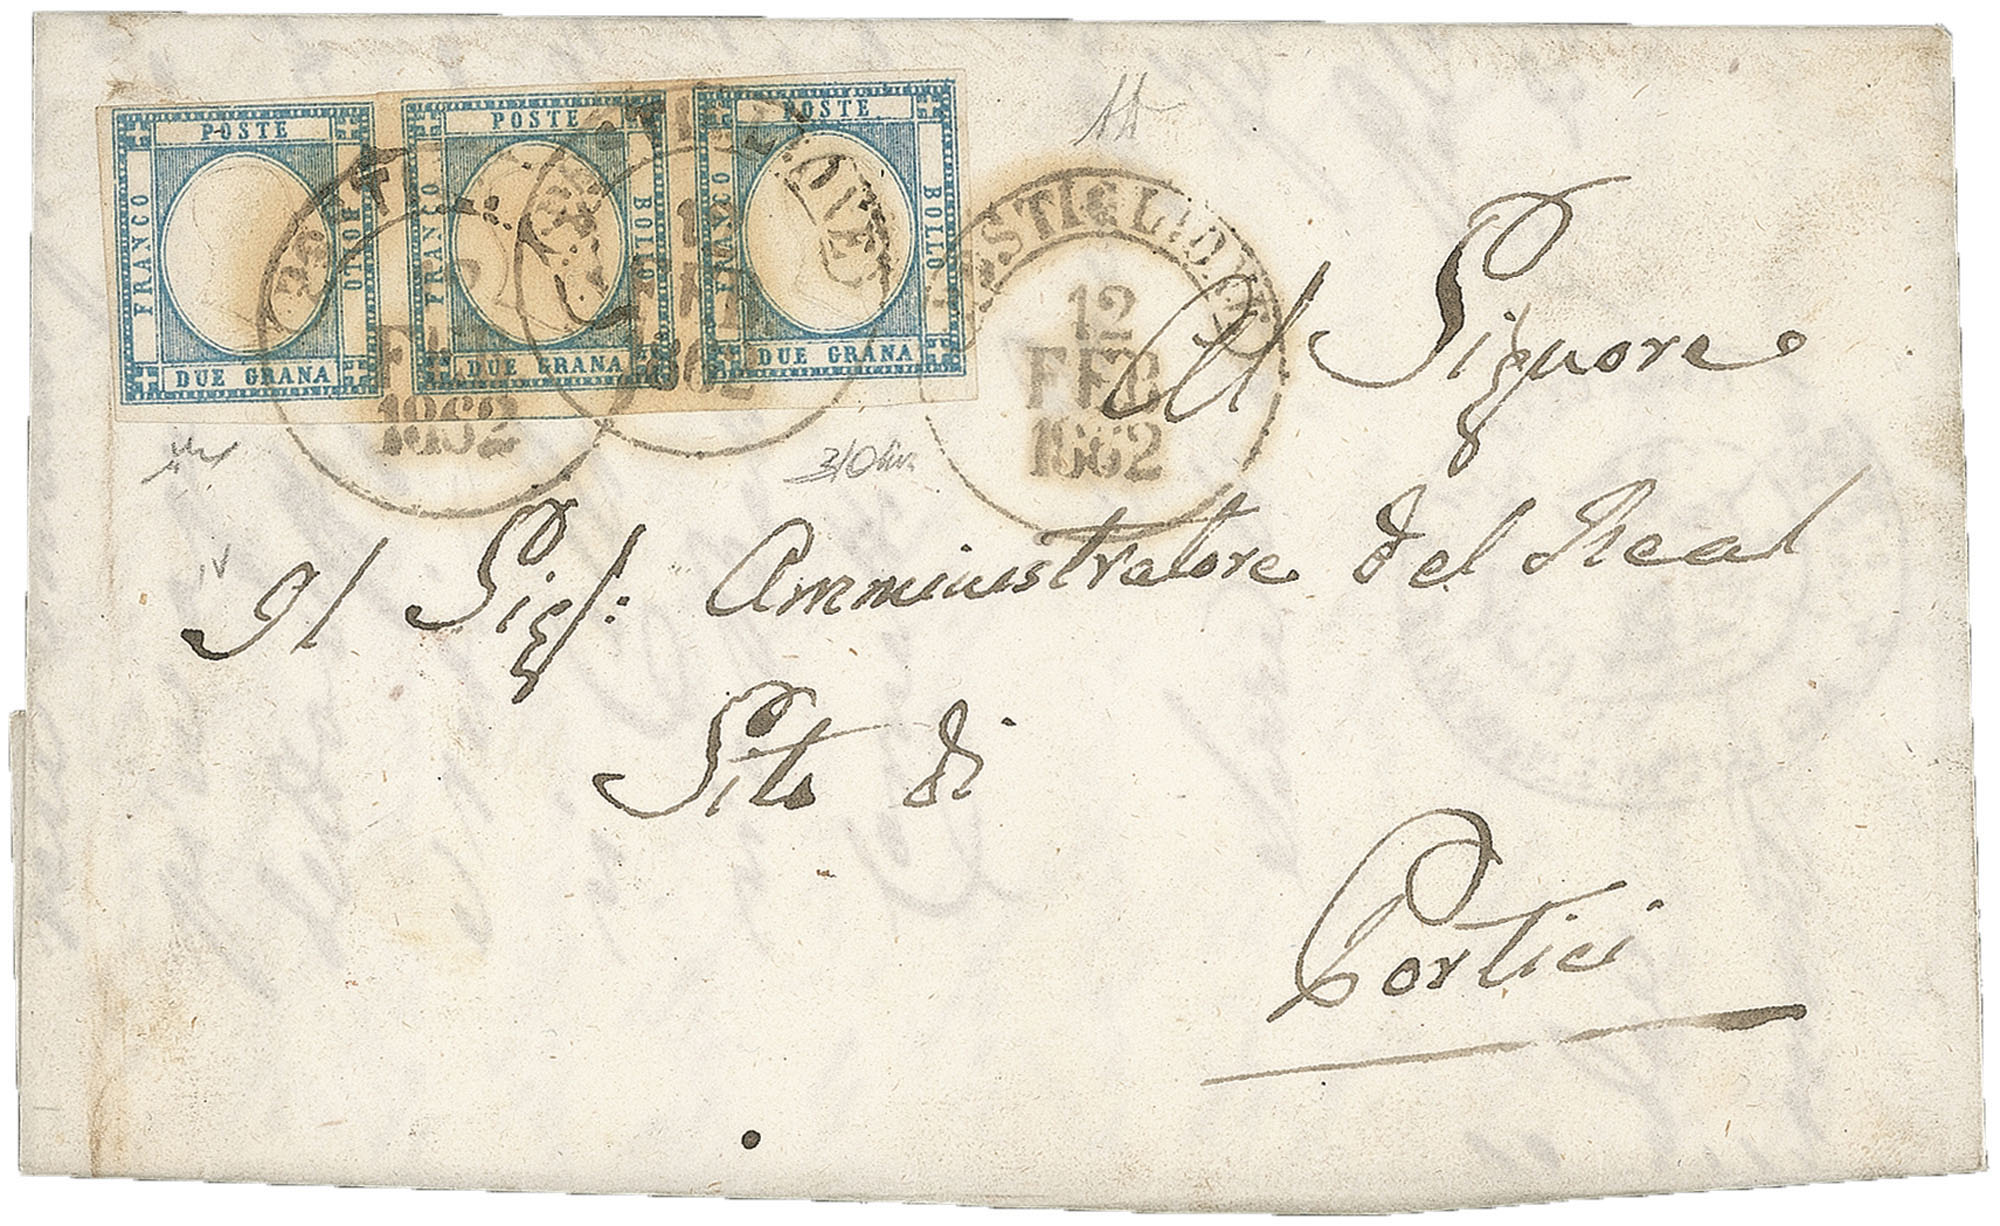 POSTE
FRANCO
BOLLO
DUE GRANA
POSTE
FRANCO
BOLLO
DUE GRANA
POSTE
FRANCO
BOLLO
DUE GRANA
1862
12
FEB
1862
12
FEB
1862
3/0
Al Signore
Il Sigr: Amministratore del Real
Sito di
Portici